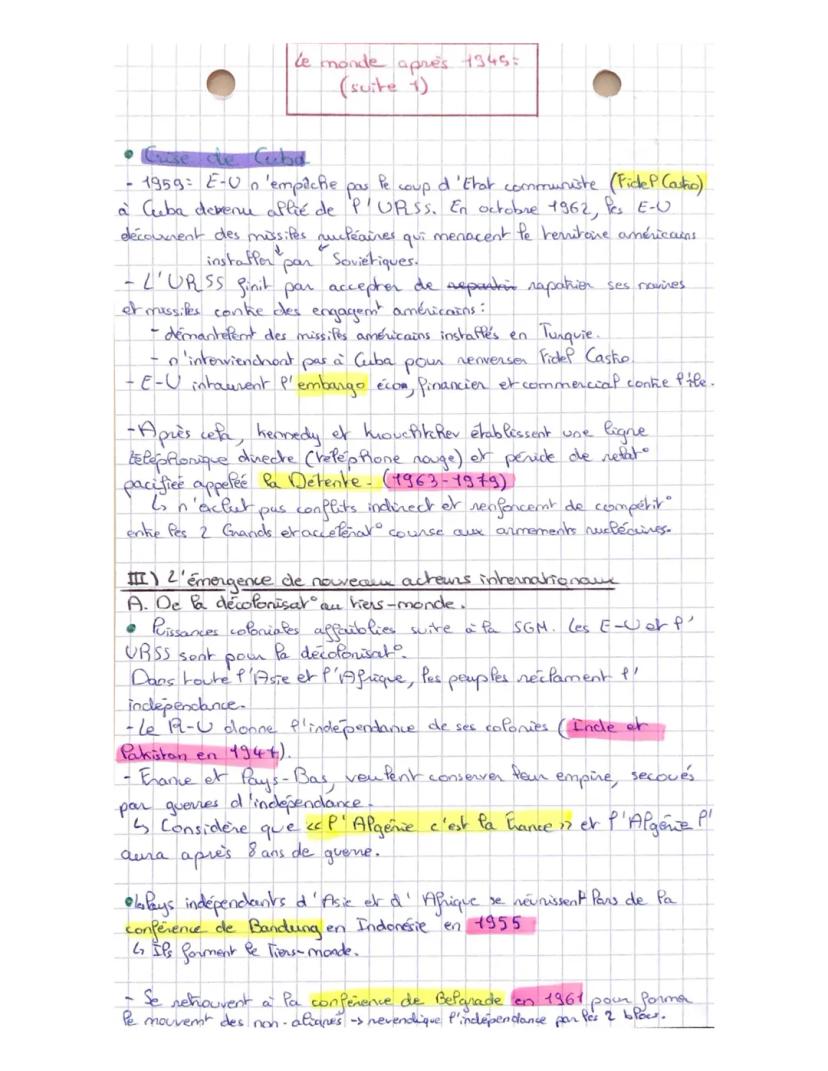 Le monde après 1945:
(suite 1)
• Crise de Cuba
- 1959: E-U n'empêche pas le coup d'Etat communiste (Fidel Castro)
à Cuba devenu allié de l'URSS. En octobre 1962, les E-U
découvrent des missiles nucléaires qui menacent le territoire américains
installer par Soviétiques.
- L'URSS finit par accepter de rapatrier ses navires
et missiles contre des engagemt américains:
- démantelent des missiles américains installés en Turquie.
- n'interviendront pas à Cuba pour renverser Fidel Castro.
- E-U intaurent l'embargo écon, financier et commercial contre l'île.
- Après cela, kennedy et krouchtchev établissent une ligne
téléphonique directe (téléphone rouge) et péride de relat°
pacifiée appelée la Détente - (1963-1979)
↳ n'exclut pas conflits indirect et renforcemt de compétit°
entre les 2 Grands et accélérat° course aux armements nucléaires.
III) L'émergence de nouveaux acteurs internationaux
A. De la décolonisat° au tiers-monde.
• Puissances coloniales affaiblies suite à la SGM. Les E-U et l'
URSS sont pour la décolonisat°.
Dans toute l'Asie et l'Afrique, les peuples réclament l'
indépendance.
- Le R-U donne l'indépendance de ses colonies (Inde et
Pakistan en 1947).
- France et Pays-Bas, veulent conserver leur empire, secoués
par guerres d'indépendance.
↳ Considère que << l'Algérie c'est la France >> et l'Algérie l'
aura après 8 ans de guerre.
• les Pays indépendants d'Asie et d'Afrique se réunissent lors de la
conférence de Bandung en Indonésie en 1955
↳ Ils forment le Tiers-monde.
- Se retrouvent à la conférence de Belgrade en 1961 pour forma
le mouvemt des non-alignés → revendique l'indépendance par les 2 blocs.